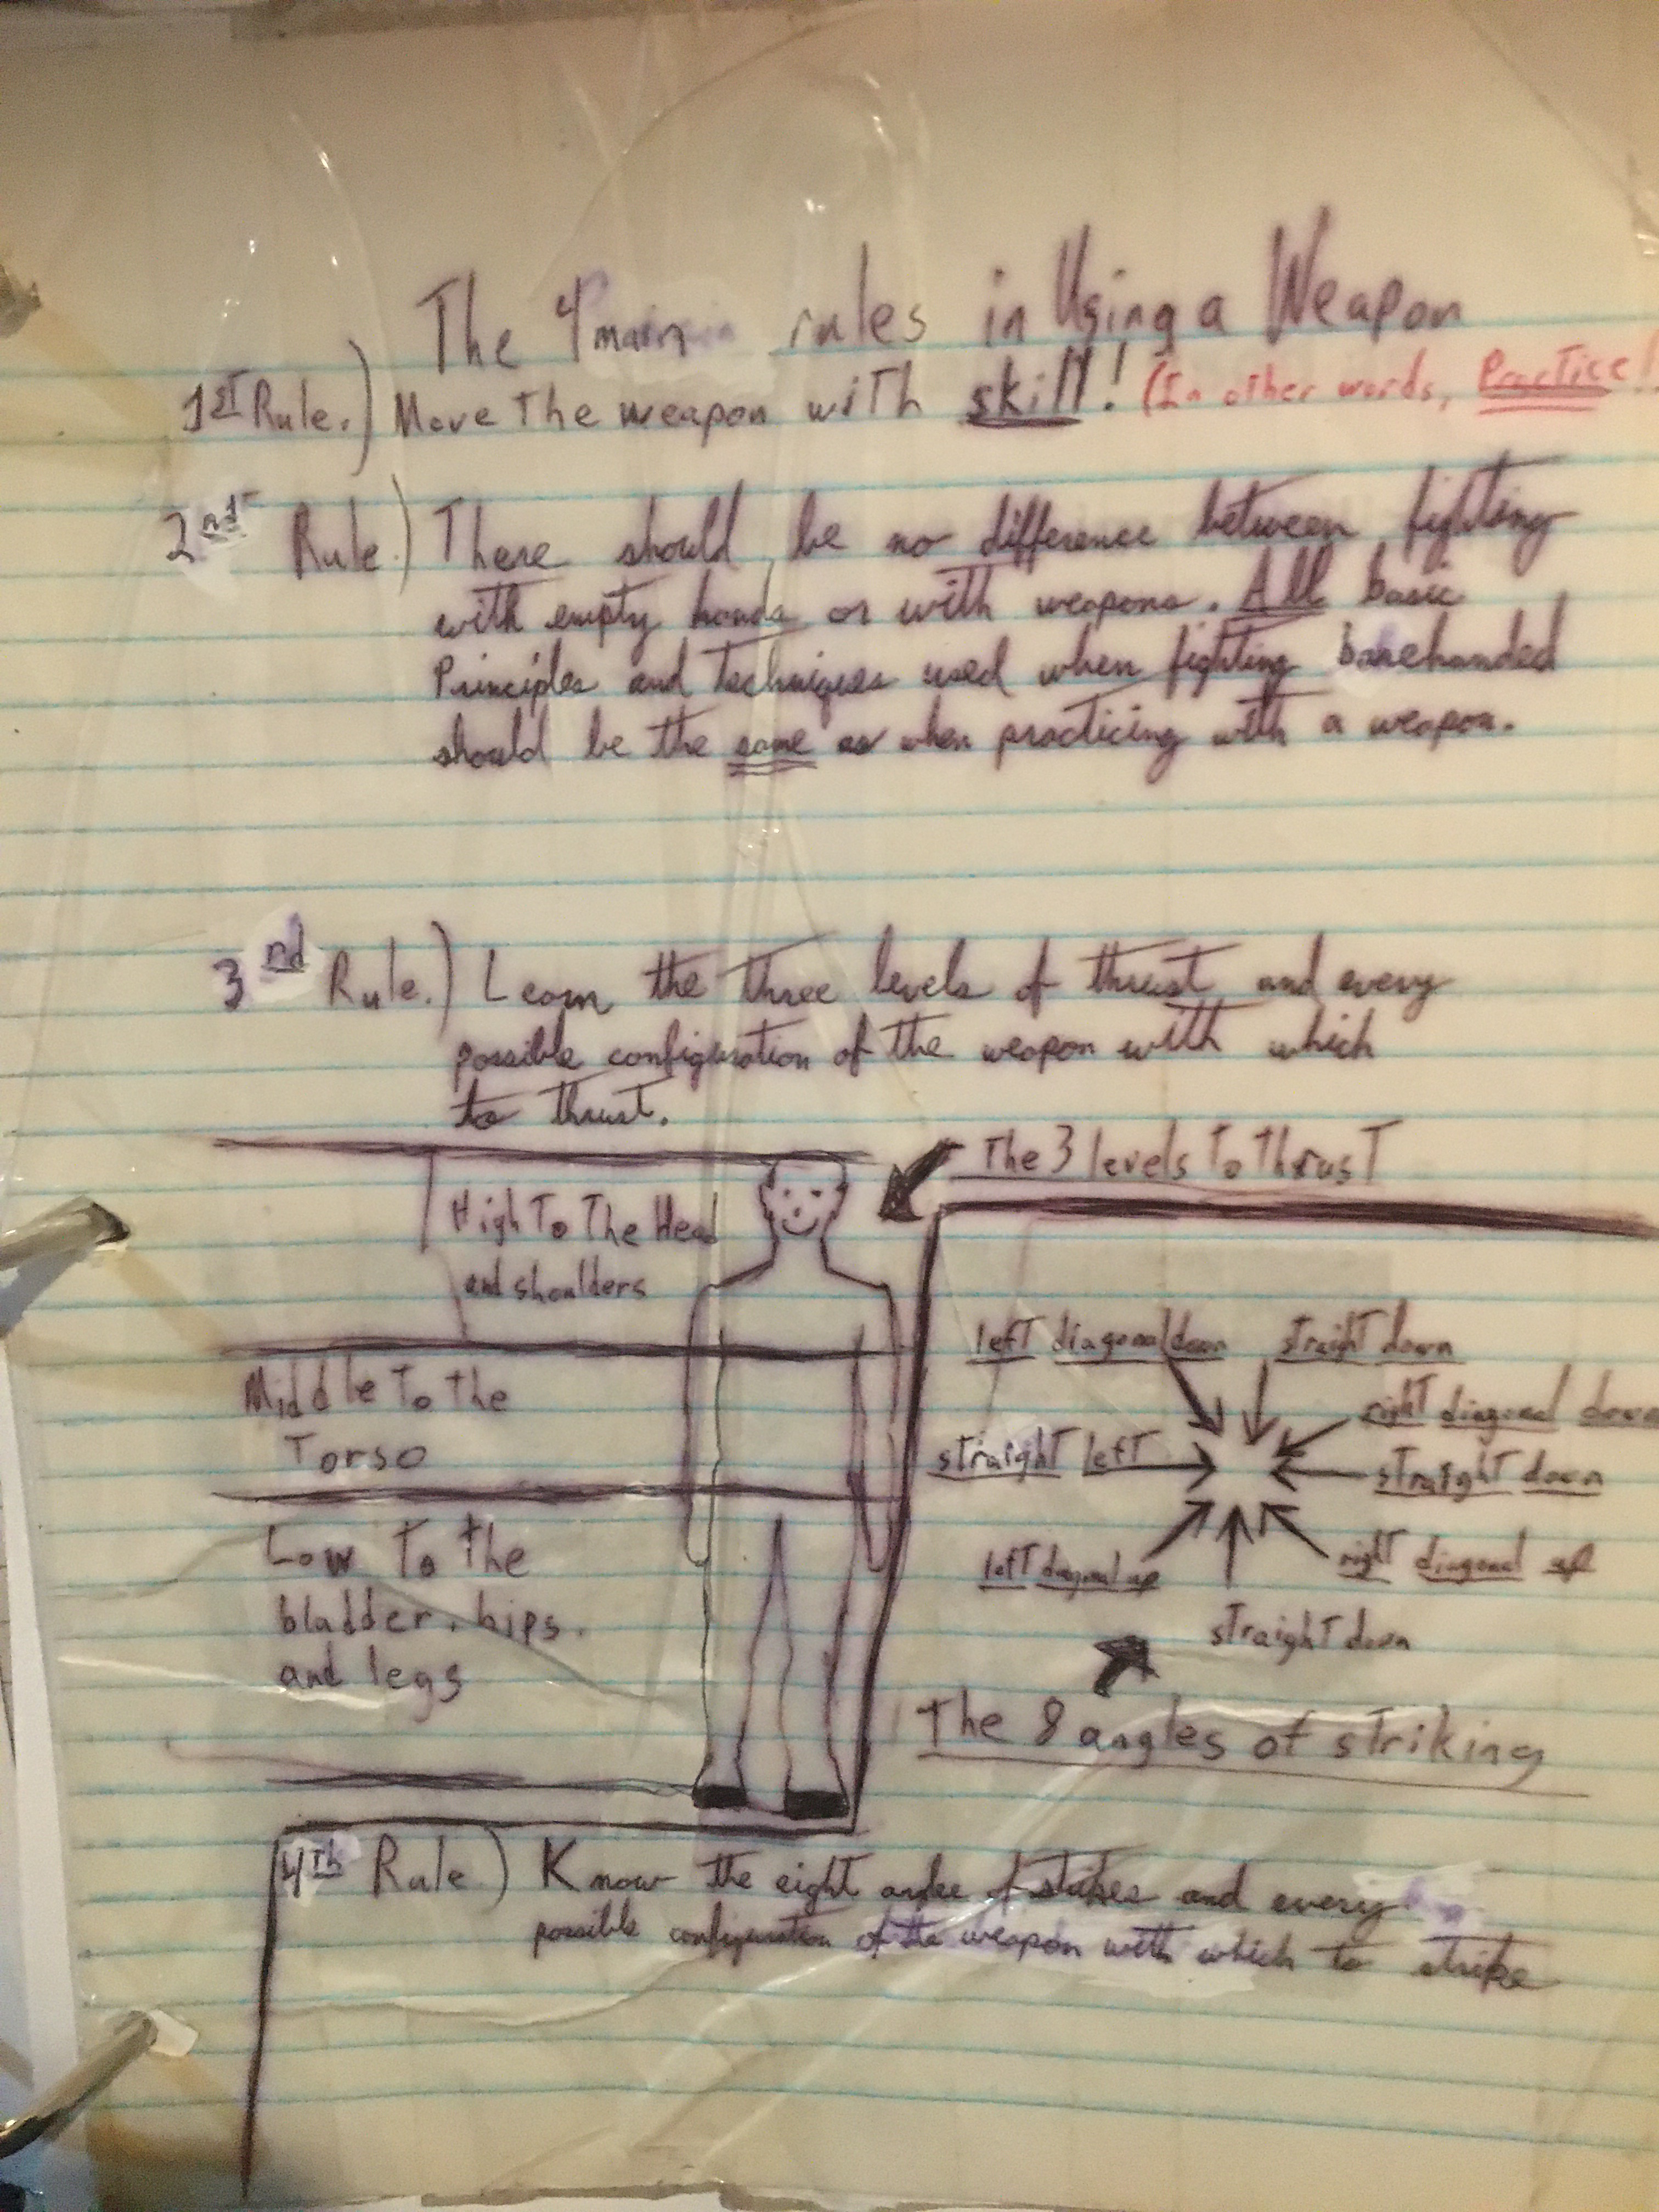 The 4 main rules in Using a Weapon
1st Rule.) Move The weapon with skill! (In other words, Practice!!
2nd Rule.) There should be no difference between fighting
with empty hands or with weapons. All basic
Principles and Techniques used when fighting barehanded
should be the same as when practicing with a weapon.
3nd Rule.) Learn the three levels of thrust and every
possible configuration of the weapon with which
to thrust.
The 3 levels To thrust
High To The Head
and shoulders
Middle To the
Torso
Low To the
bladder, hips,
and legs
left diagonal down
straight down
right diagonal down
straight left
straight down
left diagonal up
right diagonal up
straight down
The 8 angles of striking
4th Rule.) Know the eight of strikes and every
possible configuration of the weapon with which to strike